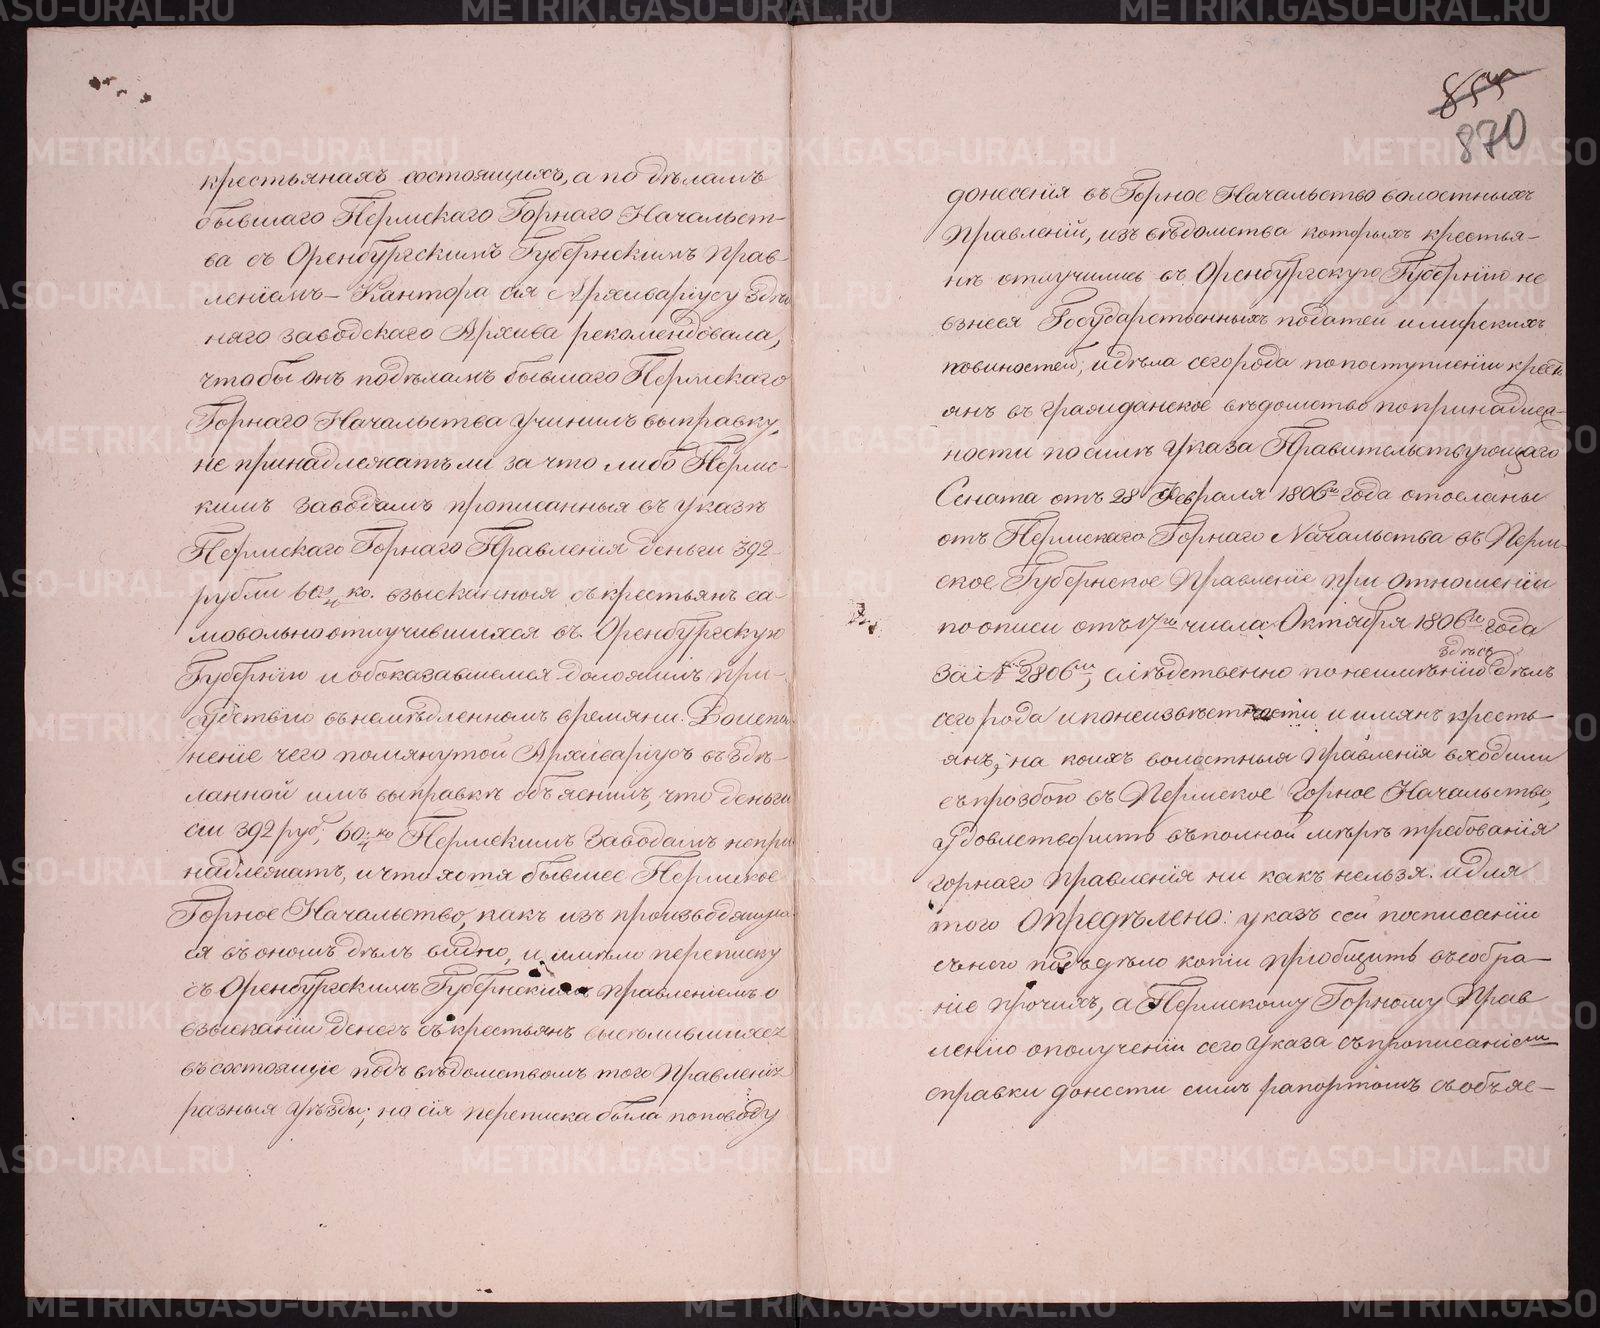 крестьянахъ состоящихъ, а по дѣламъ
бывшаго Пермскаго Горнаго Начальст-
ва съ Оренбургскимъ Губернскимъ Прав-
леніемъ – Кантора сія Архиваріусу здѣш
няго заводскаго Архива рекомендовала,
чтобы онъ подѣламъ бывшаго Пермскаго
Горнаго Начальства учинилъ выправку,
не принадлежатъ ли за что либо Перм-
скимъ заводамъ прописанныя въ указѣ
Пермскаго Горнаго Правленія деньги 392
рубли 60 2/4 ко. взысканныя съ крестьянъ са-
мовольно отлучившихся въ Оренбургскую
Губернію и обоказавшемся доложилъ при-
судствію въ немѣдленномъ времяни. Воиспол
неніе чего помянутой Архиваріусъ въ здѣ-
ланной имъ выправкѣ объяснилъ, что деньги
сіи 392 руб; 60 2/4 ко Пермскимъ заводамъ непри
надлежатъ, и что хотя бывшее Пермское
Горное Начальство, какъ изъ производящихъ
ся въ ономъ дѣлъ видно, и имѣло переписку
съ Оренбургскимъ Губернскимъ Правленіемъ о
взысканіи денегъ съ крестьянъ выселившихся
въ состоящіе подъ вѣдомствомъ того Правленія
разныя уѣзды; но сія переписка была поповоду
855
870
донесенія въ Горное Начальство волостныхъ
Правленій, изъ вѣдомства которыхъ крестья-
нѣ отлучились въ Оренбургскую Губернію не
взнеся Государственныхъ податей и мирскихъ
повиностей, и дѣла сего рода по поступленіи кресть
янъ въ гражданское вѣдомство по принадлеж-
ности по силѣ указа Правительствующаго
Сената отъ 28 Февраля 1806го года отосланы
отъ Пермскаго Горнаго Начальства въ Перм-
ское Губернское Правленіе при отношеніи
по описи отъ 17го числа Октября 1806го года
за № 2806мъ, слѣдственно по неимѣнію здѣсь дѣлъ
сего рода и по неизвѣстности и имянъ кресть-
янъ, на коихъ волостныя Правленія входили
съ прозбою въ Пермское Горное Начальство,
удовлетворить въ полной мѣрѣ требованія
горнаго правленія ни какъ нельзя. а для
того Опредѣлено: указъ сей посписаніи
съ него подъ дѣло копіи пріобщить въ собра-
ніе прочихъ, а Пермскому Горному Прав
ленію о полученіи сего указа съ прописаніемъ
справки донести симъ рапортомъ съ объяс-